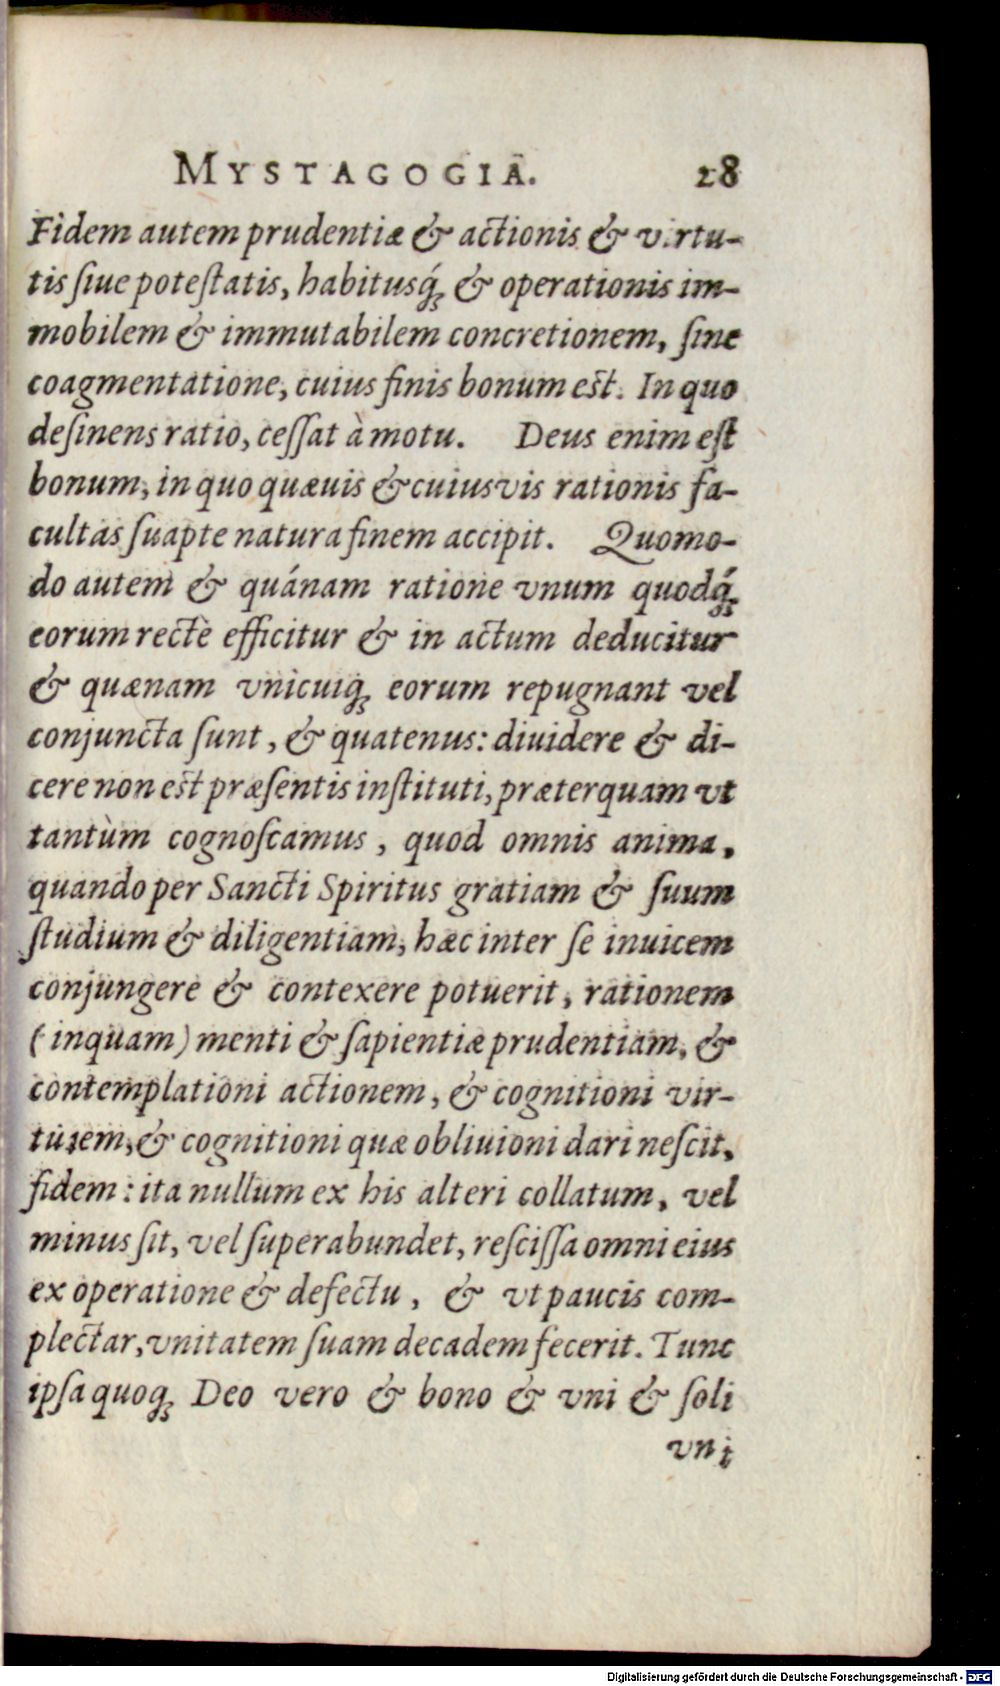 MYSTAGOGIA. 28
Fidem autem prudentiæ & actionis & virtu-
tis ſiue poteſtatis, habitusq́; & operationis im-
mobilem & immutabilem concretionem, ſine
coagmentatione, cuius finis bonum est. In quo
deſinens ratio, ceſſat à motu. Deus enim eſt
bonum, in quo quæuis & cuiusvis rationis fa-
cultas ſuapte natura finem accipit. Quomo-
do autem & quánam ratione vnum quodq́;
eorum rectè efficitur & in actum deducitur
& quænam vnicuiq; eorum repugnant vel
conjuncta ſunt, & quatenus: diuidere & di-
cere non est præſentis inſtituti, præterquam vt
tantùm cognoſcamus, quod omnis anima,
quando per Sancti Spiritus gratiam & ſuum
ſtudium & diligentiam, hæc inter ſe inuicem
conjungere & contexere potuerit, rationem
(inquam) menti & ſapientiæ prudentiam, &
contemplationi actionem, & cognitioni vir-
tutem, & cognitioni quæ obliuioni dari neſcit,
fidem: ita nullum ex his alteri collatum, vel
minus ſit, vel ſuperabundet, reſciſſa omni eius
ex operatione & defectu, & vt paucis com-
plectar, vnitatem ſuam decadem fecerit. Tunc
ipſa quoq; Deo vero & bono & vni & ſoli
vni
Digitalisierung gefördert durch die Deutsche Forschungsgemeinschaft - DFG